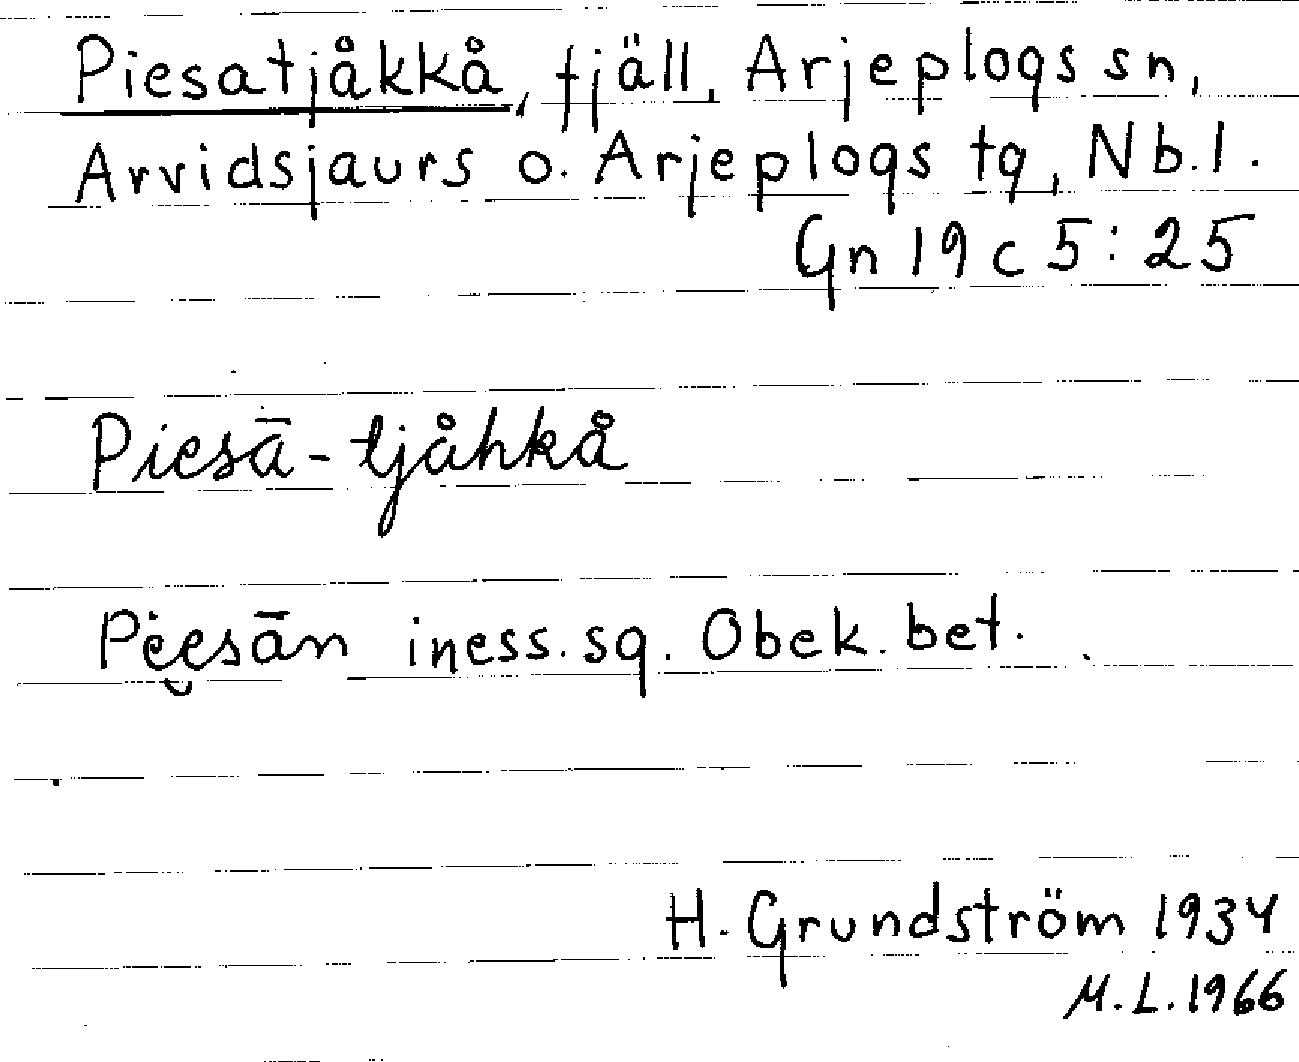 Piesatjåkkå, fjäll, Arjeplogs sn,
Arvidsjaurs o. Arjeplogs tg, Nb.l.
Gn 19 c 5:25
Piesā-tjåhkå
Pėe̮sān iness. sg. Obek. bet.
H. Grundström 1934
M.L. 1966